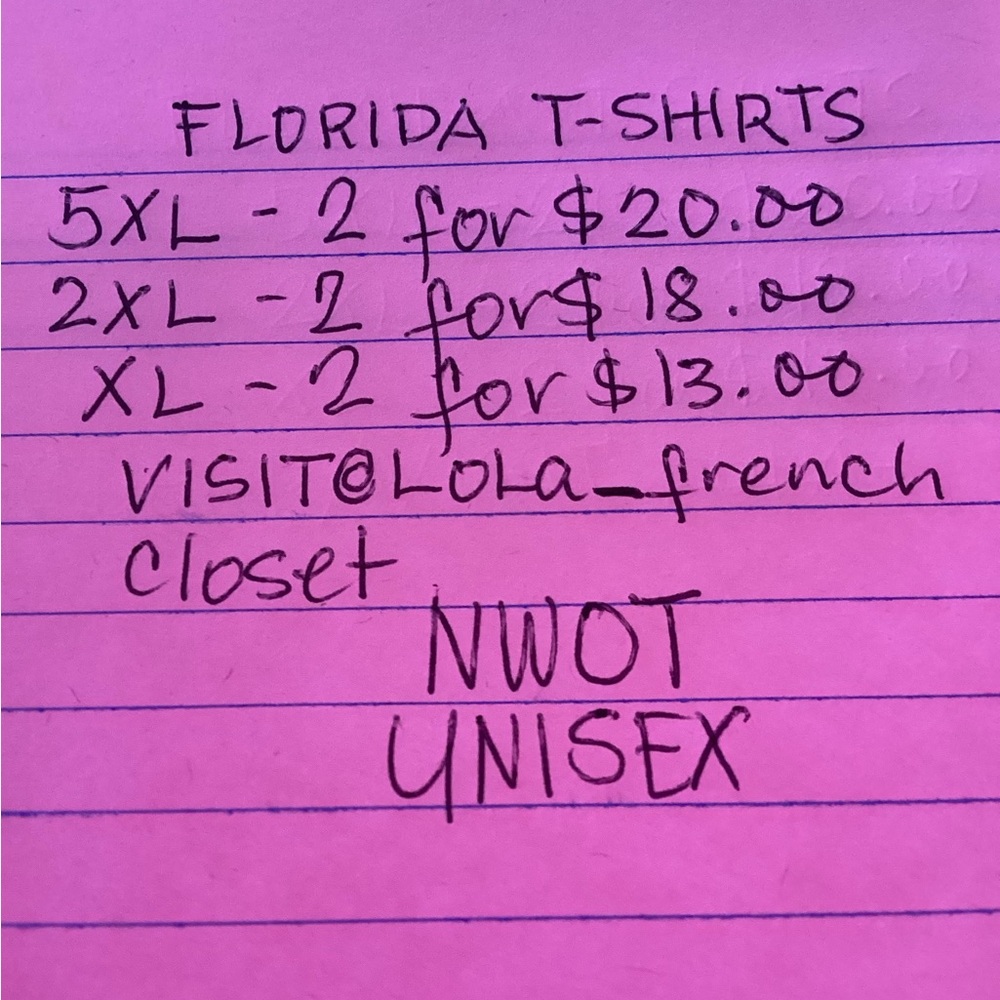 FLORIDA T-SHIRTS
5XL - 2 for $20.00
2XL - 2 for $ 18.00
XL - 2 for $13.00
VISIT@LOLa_french
closet
NWOT
UNISEX